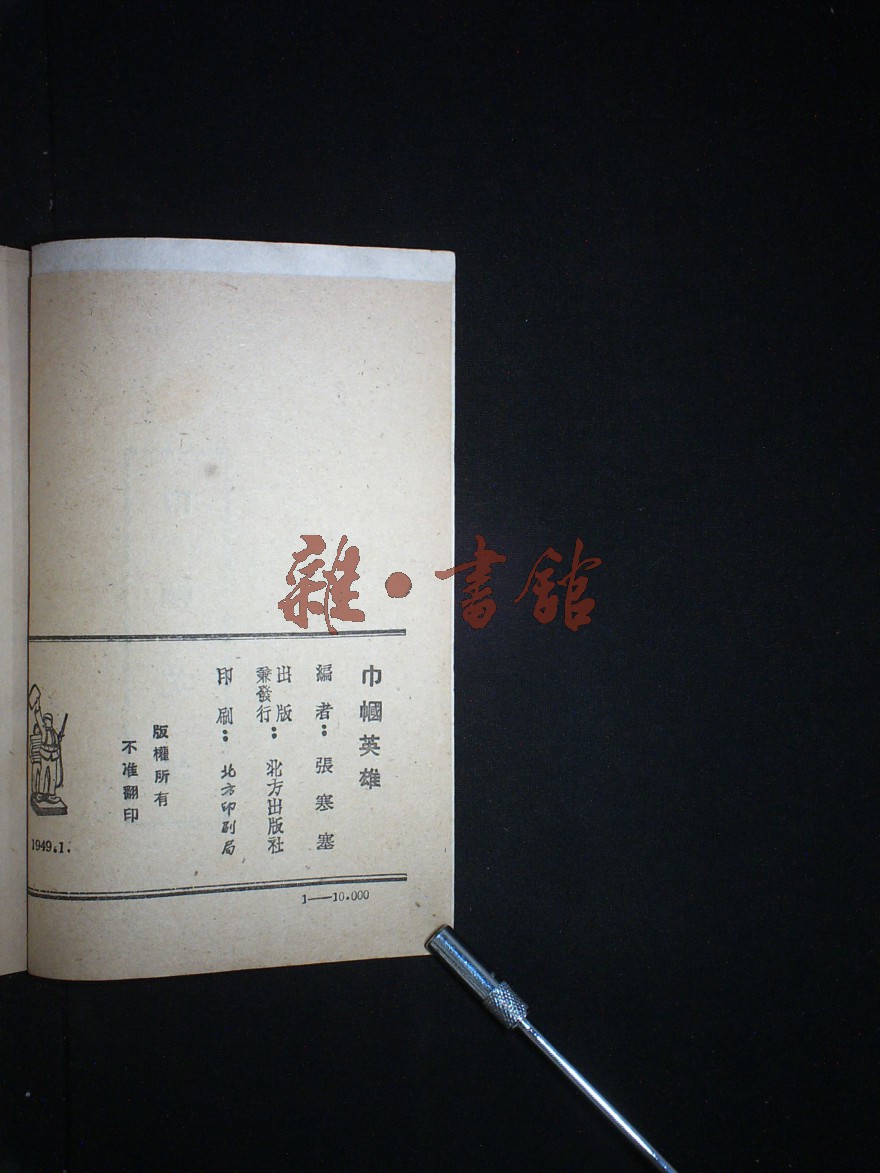 巾幗英雄
編者：張寒塞
出版
兼發行：北方出版社
印刷：北方印刷局
版權所有
不准翻印
1949.1.
1——10.000
雜·書館